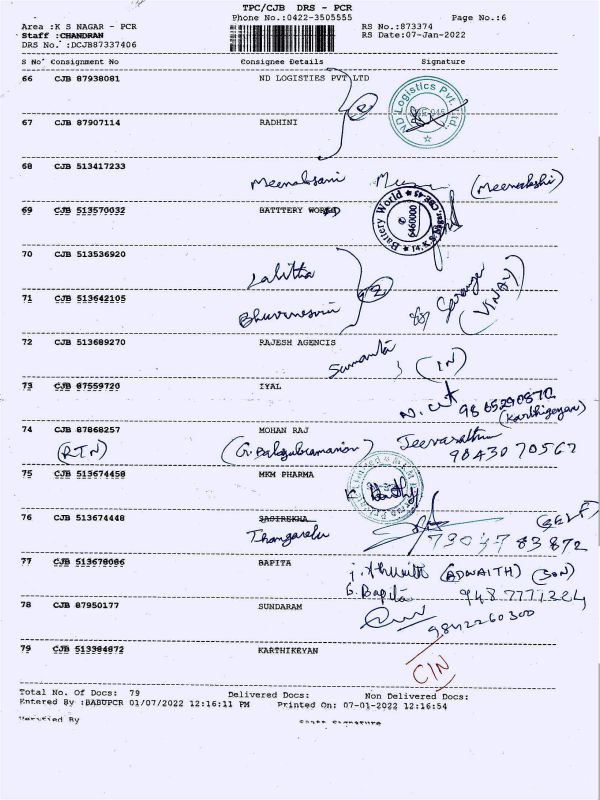 TPC/CJB DRS - PCR
Area :K S NAGAR - PCR Phone No.:0422-3505555 Page No.:6
Staff :CHANDRAN RS No.:873374
DRS No. :DCJB87337406 RS Date:07-Jan-2022
S No Consignment No Consignee Details Signature
66 CJB 87938081 ND LOGISTIES PVT LTD
ND Logistics Pvt. Ltd.
67 CJB 87907114 RADHINI
68 CJB 513417233
(Meenakshi)
69 CJB 513570032 BATTTERY WORLD
Battery World
6460000
70 CJB 513536920
Lalitha
71 CJB 513642105
(VINAY)
72 CJB 513689270 RAJESH AGENCIS
Sumanta (IN)
73 CJB 87559720 IYAL
9865290870
(Karthigeyan)
74 CJB 87868257 MOHAN RAJ
(RTN) (G. Balasubramanian) Jeevarathinam
9843070567
75 CJB 513674458 MKM PHARMA
76 CJB 513674448 SASIREKHA
Thangavelu (SELF)
73047 83872
77 CJB 513678086 BAPITA
(ADWAITH) (SON)
G. Bapita 9487771224
78 CJB 87950177 SUNDARAM
9842260300
79 CJB 513384872 KARTHIKEYAN
CIN
Total No. Of Docs: 79 Delivered Docs: Non Delivered Docs:
Entered By :BABUPCR 01/07/2022 12:16:11 PM Printed On: 07-01-2022 12:16:54
Verified By Staff Signature